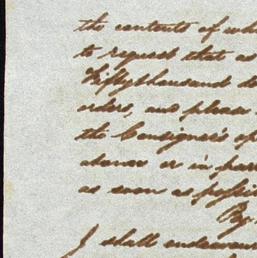 the contents of
to request that
Fifty thousand
orders, and please
the Consignee's
above or in part
as soon as possi
By
I shall endeavour